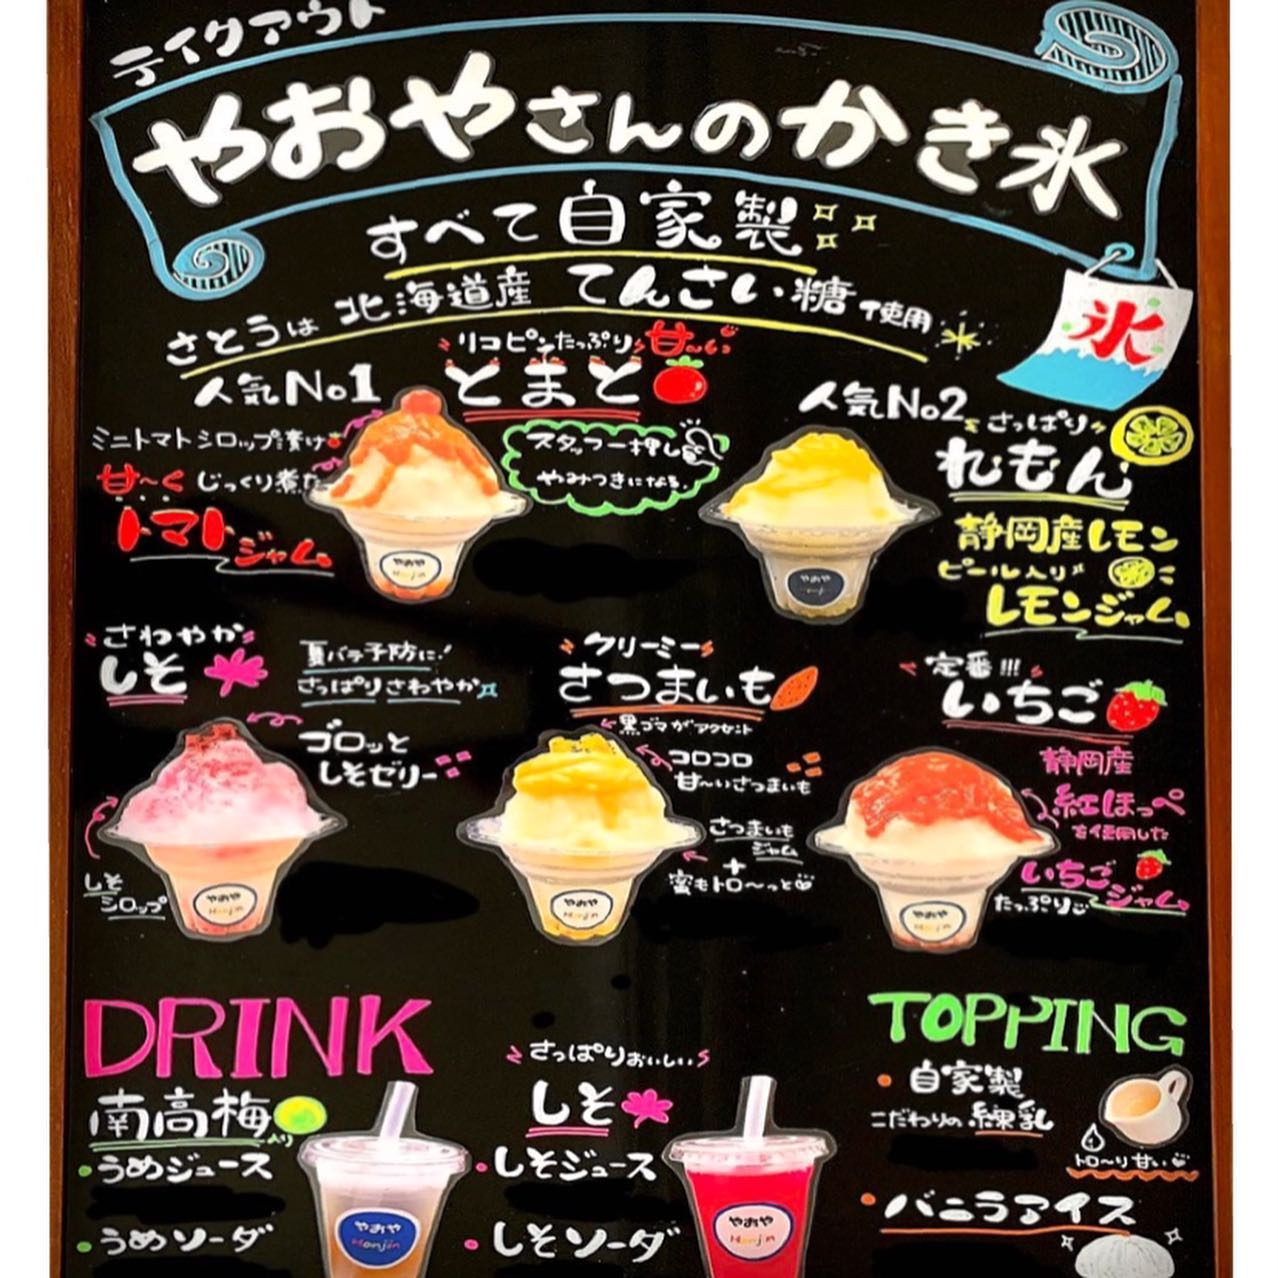 テイクアウト
やおやさんのかき氷
すべて自家製
さとうは北海道産てんさい糖使用
人気No1
リコピンたっぷり甘〜い
とまと
ミニトマトシロップ漬け
甘〜くじっくり煮た
トマトジャム
スタッフ一押し
やみつきになる。
やおや
Honjin
人気No2
さっぱり
れもん
静岡産レモン
ピール入り
レモンジャム
やおや
氷
さわやか
しそ
夏バテ予防に!
さっぱりさわやか
ゴロッと
しそゼリー
しそ
シロップ
やおや
Honjin
クリーミー
さつまいも
黒ゴマがアクセント
コロコロ
甘〜いさつまいも
さつまいも
ジャム
+
蜜もトロ〜っと
やおや
Honjin
定番!!!
いちご
静岡産
紅ほっぺ
を使用した
いちごジャム
たっぷり
やおや
Honjin
DRINK
南高梅入り
・うめジュース
・うめソーダ
やおや
Honjin
さっぱりおいしい
しそ
・しそジュース
・しそソーダ
やおや
Honjin
TOPPING
・自家製
こだわりの練乳
トロ〜り甘い
・バニラアイス